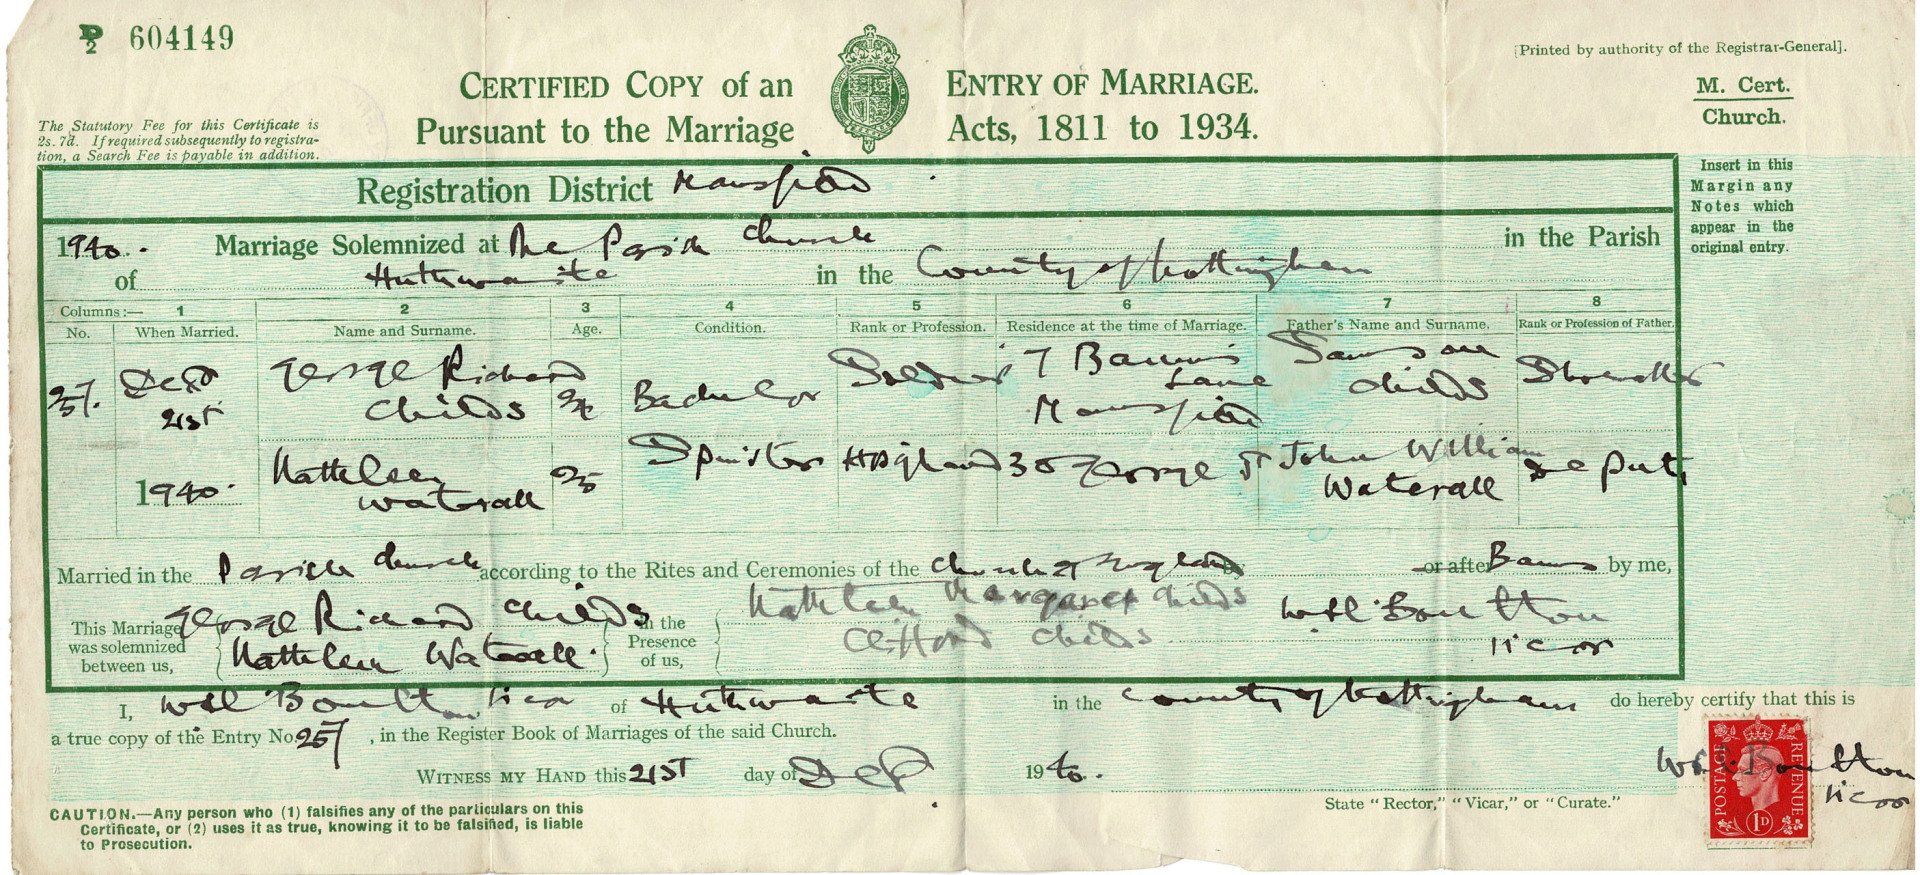 P/2 604149
[Printed by authority of the Registrar-General].
CERTIFIED COPY of an ENTRY OF MARRIAGE.
Pursuant to the Marriage Acts, 1811 to 1934.
M. Cert.
Church.
The Statutory Fee for this Certificate is
2s. 7d. If required subsequently to registra-
tion, a Search Fee is payable in addition.
Registration District Mansfield
Insert in this
Margin any
Notes which
appear in the
original entry.
1940. Marriage Solemnized at The Parish Church in the Parish
of Huthwaite in the County of Nottingham
Columns:— 1 2 3 4 5 6 7 8
No. When Married. Name and Surname. Age. Condition. Rank or Profession. Residence at the time of Marriage. Father's Name and Surname. Rank or Profession of Father.
257. Dec 21st George Richard Childs 24 Bachelor Soldier 7 Lane Mansfield Samson Childs
1940. Kathleen Waterall 25 Spinster 30 George St John William Waterall Deputy
Married in the Parish Church according to the Rites and Ceremonies of the Church of England or after Banns by me,
This Marriage was solemnized between us, George Richard Childs Kathleen Waterall. in the Presence of us, Kathleen Margaret Childs Clifford Childs W H Boulton Vicar
I, W H Boulton Vicar of Huthwaite in the County of Nottingham do hereby certify that this is
a true copy of the Entry No. 257, in the Register Book of Marriages of the said Church.
WITNESS MY HAND this 21st day of Dec 1940.
W H Boulton
Vicar
State "Rector," "Vicar," or "Curate."
CAUTION.—Any person who (1) falsifies any of the particulars on this
Certificate, or (2) uses it as true, knowing it to be falsified, is liable
to Prosecution.
POSTAGE REVENUE
1D